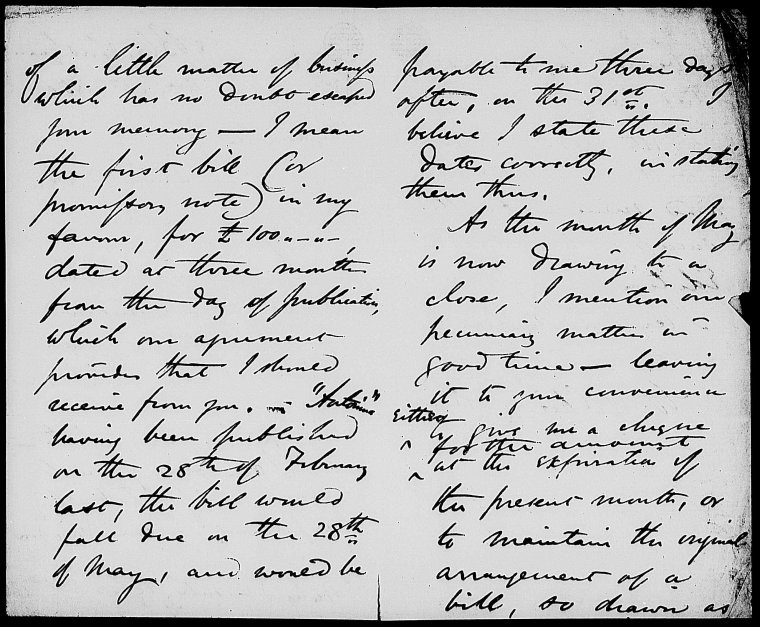 of a little matter of business
which has no doubt escaped
your memory — I mean
the first bill (or
promissory note) in my
favour, for £100 „ – „ –,
dated at three months
from the day of publication,
which our agreement
provides that I should
receive from you. — "Antonina"
having been published
on the 28th of February
last, the bill would
fall due on the 28th
of May, and would be
payable to me three days
after, on the 31st. I
believe I state these
dates correctly, in stating
them thus.
As the month of May
is now drawing to a
close, I mention our
pecuniary matters in
good time — leaving
it to your convenience
either to give me a cheque
for the amount
at the expiration of
the present month, or
to maintain the original
arrangement of a
bill, so drawn as